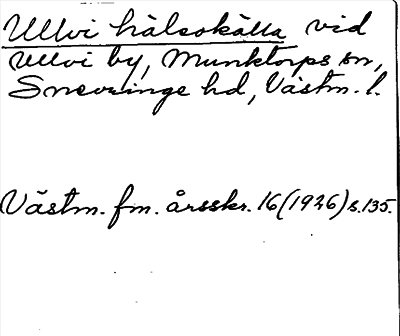 Ullvi hälsokälla vid
Ullvi by, Munktorps sn,
Snevringe hd, Västm. l.
Västm. fm. årsskr. 16(1926) s.135.